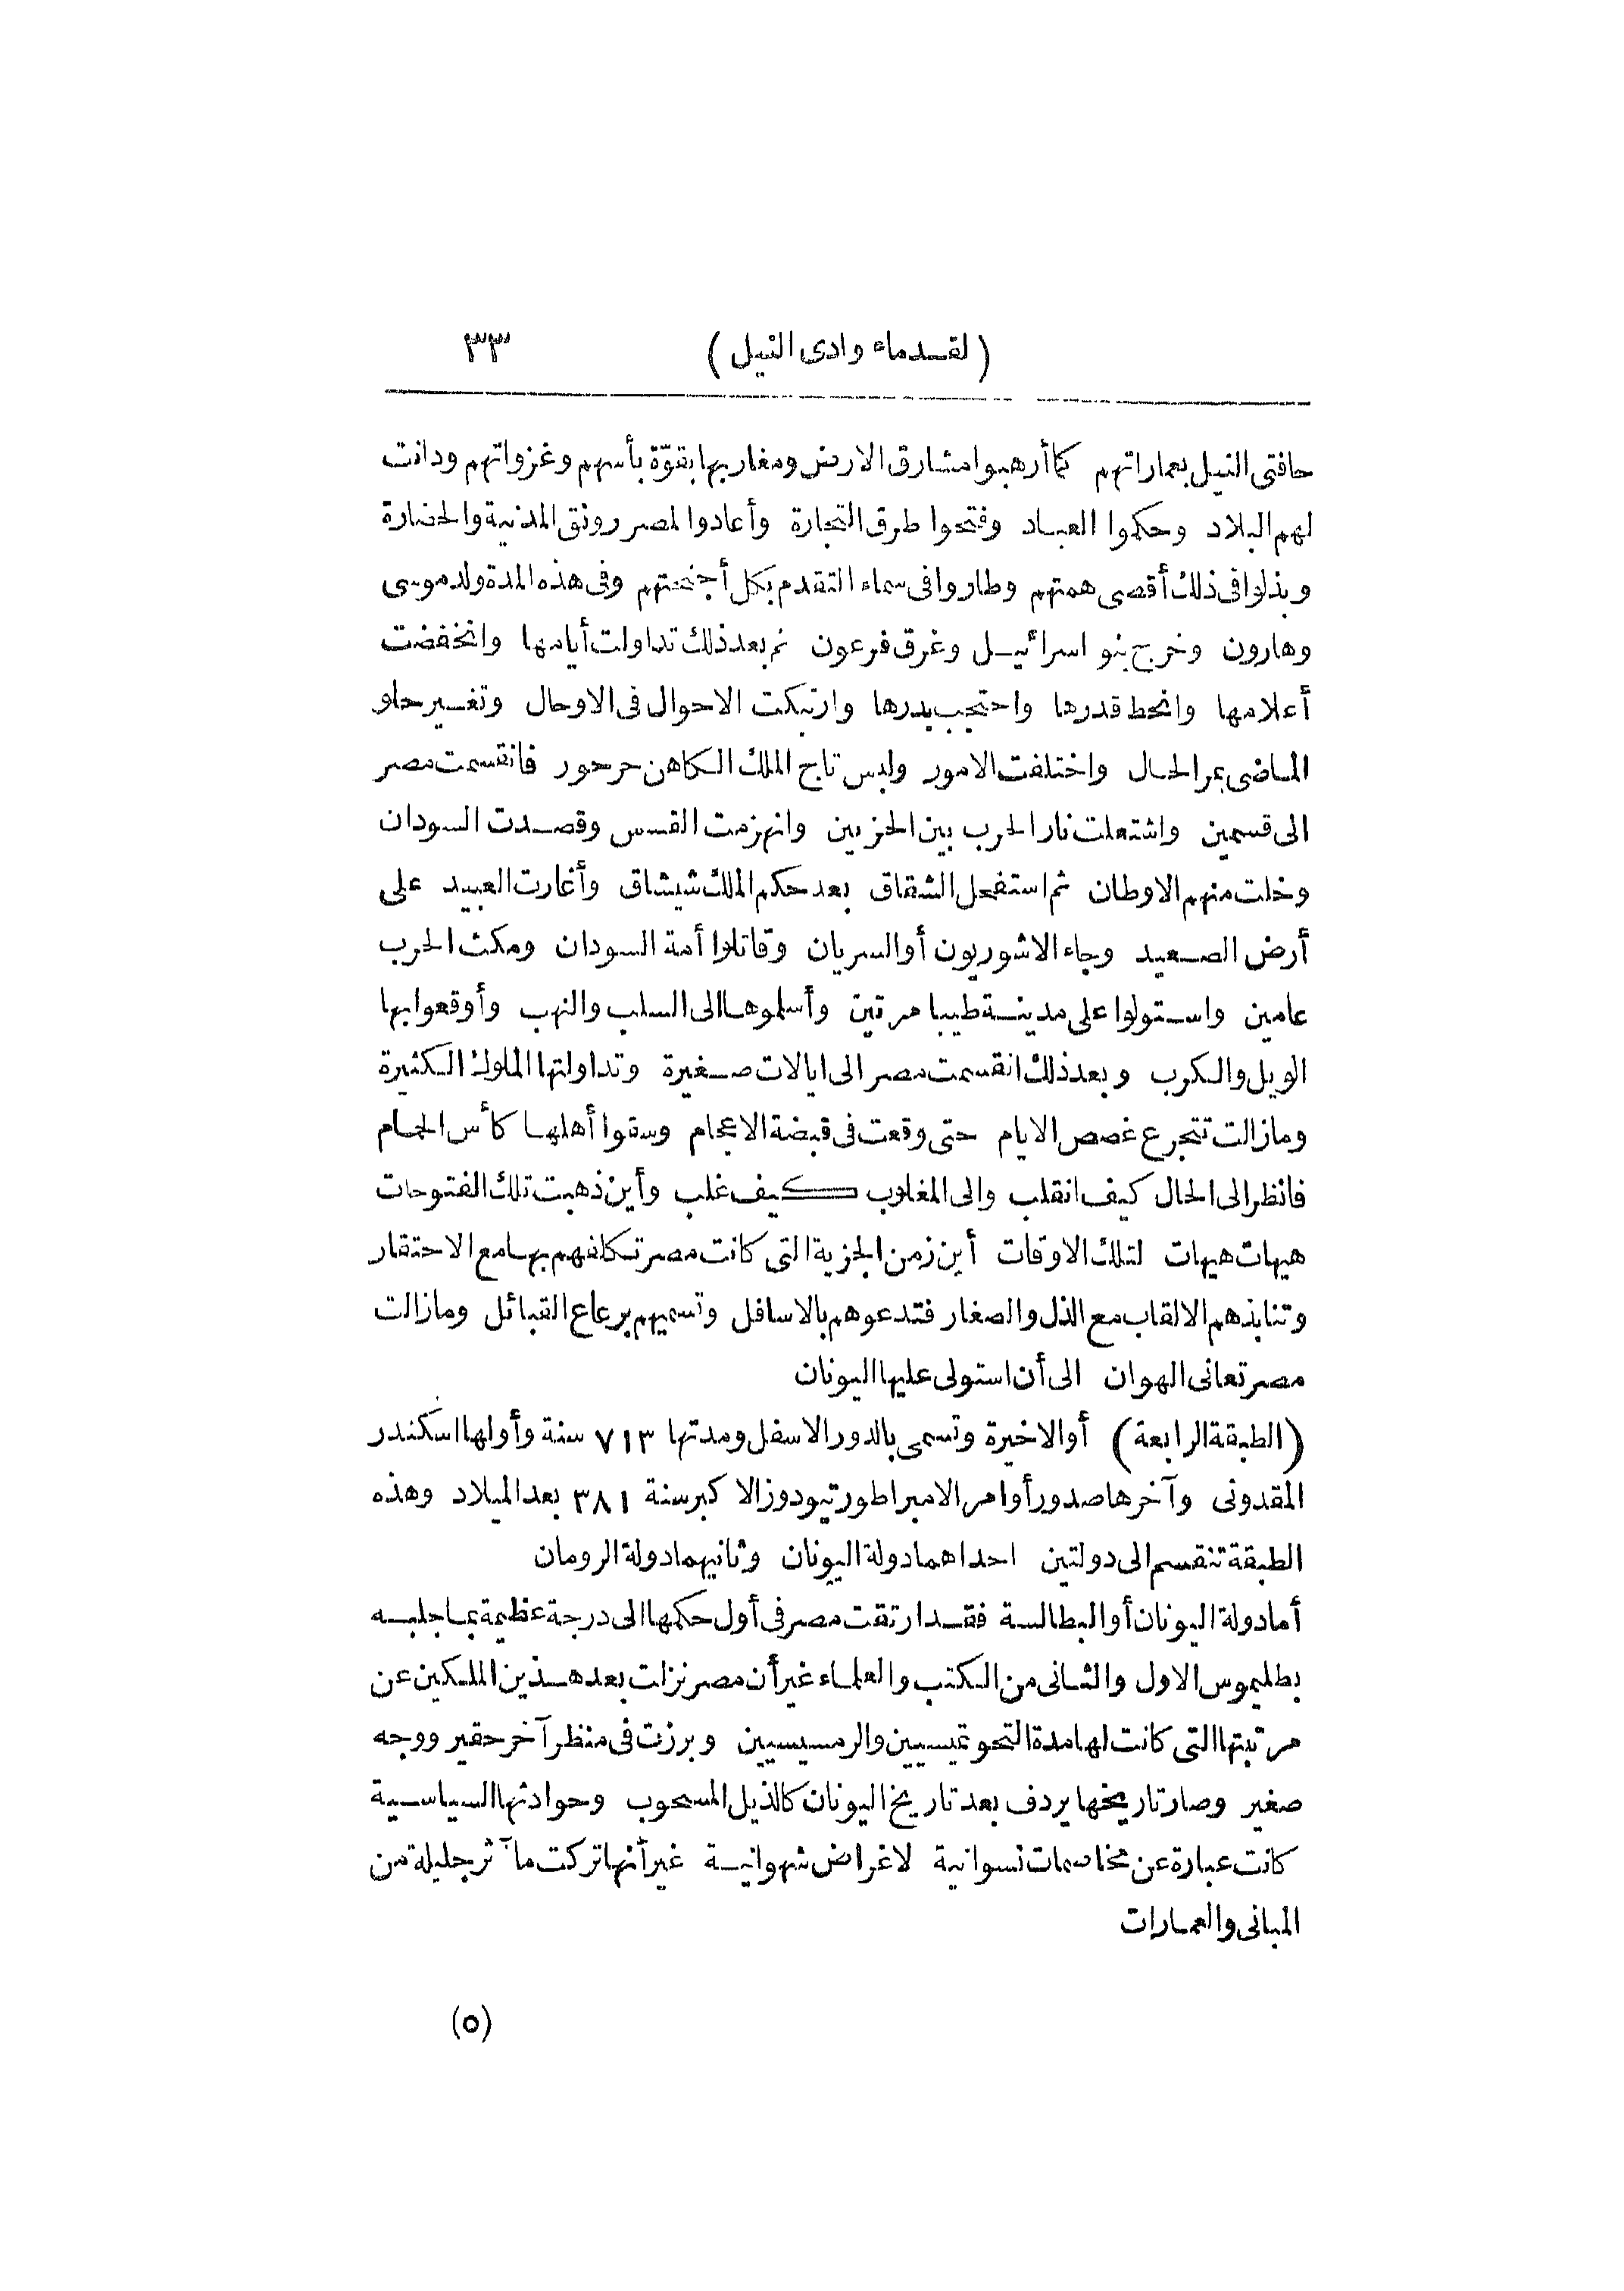 (لقدماء وادى النيل) ٣٣
حافتى النيل بعماراتهم كما أرهبوا مشارق الارض ومغاربها بقوّة بأسهم وغزواتهم ودانت
لهم البلاد وحكموا العباد وفتحوا طرق التجارة وأعادوا لمصر رونق المدنية والحضارة
وبذلوا فى ذلك أقصى همتهم وطاروا فى سماء التقدم بكل أجنحتهم وفى هذه المدة ولد موسى
وهارون وخرج بنو اسرائيل وغرق فرعون ثم بعد ذلك تداولت أيامها وانخفضت
أعلامها وانحط قدرها واحتجب بدرها وارتبكت الاحوال فى الاوحال وتغير حلو
الماضى بمر الحال واختلفت الامور ولبس تاج الملك الكاهن حرحور فانقسمت مصر
الى قسمين واشتعلت نار الحرب بين الحزبين وانهزمت القسس وقصدت السودان
وخلت منهم الاوطان ثم استفحل الشقاق بعد حكم الملك شيشاق وأغارت العبيد على
أرض الصعيد وجاء الاشوريون أو السريان وقاتلوا أمة السودان ومكث الحرب
عامين واستولوا على مدينة طيبا مرتين وأسلموها الى السلب والنهب وأوقعوا بها
الويل والكرب وبعد ذلك انقسمت مصر الى ايالات صغيرة وتداولتها الملوك الكثيرة
ومازالت تتجرع غصص الايام حتى وقعت فى قبضة الاعجام وسقوا أهلها كأس الحمام
فانظر الى الحال كيف انقلب والى المغلوب كيف غلب وأين ذهبت تلك الفتوحات
هيهات هيهات لتلك الاوقات أين زمن الجزية التى كانت مصر تكلفهم بها مع الاحتقار
وتنابذهم الالقاب مع الذل والصغار فتدعوهم بالاسافل وتسميهم برعاع القبائل ومازالت
مصر تعانى الهوان الى أن استولى عليها اليونان
(الطبقة الرابعة) أو الاخيرة وتسمى بالدور الاسفل ومدتها ٧١٣ سنة وأولها اسكندر
المقدونى وآخرها صدور أوامر الامبراطور تيودوز الاكبر سنة ٣٨١ بعد الميلاد وهذه
الطبقة تنقسم الى دولتين احداهما دولة اليونان وثانيهما دولة الرومان
أما دولة اليونان أو البطالسة فقد ارتقت مصر فى أول حكمها الى درجة عظيمة بما جلبه
بطليموس الاول والثانى من الكتب والعلماء غير أن مصر نزلت بعد هذين الملكين عن
مرتبتها التى كانت لها مدة التحوتميسيين والرمسيسيين وبرزت فى منظر آخر حقير ووجه
صغير وصار تاريخها يردف بعد تاريخ اليونان كالذيل المسحوب وحوادثها السياسية
كانت عبارة عن مخاصمات نسوانية لاغراض شهوانية غير أنها تركت مآثر جليلة من
المبانى والعمارات
(٥)